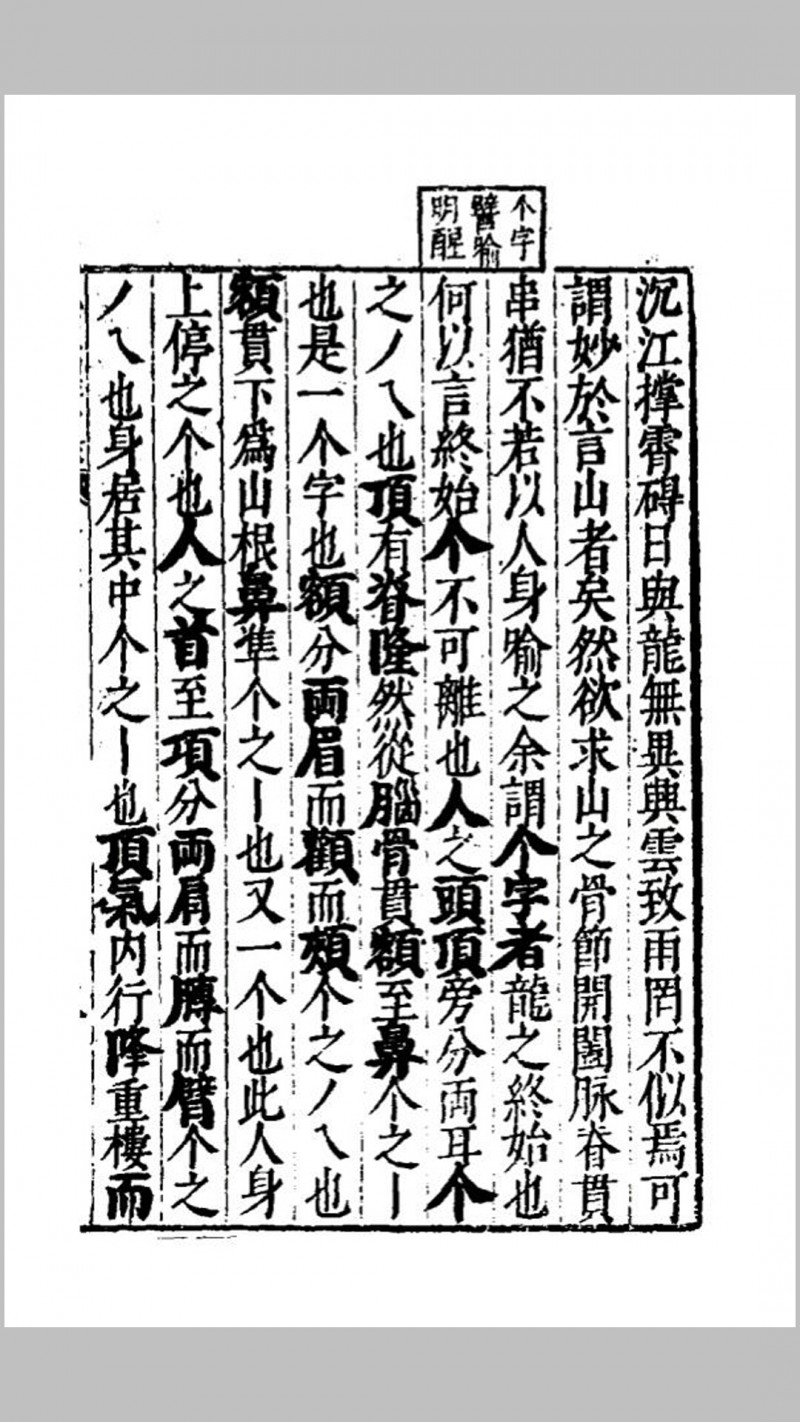 个字
譬喻
明醒
沉江撑霄碍日與龍無異興雲致雨罔不似焉可
謂妙於言山者矣然欲求山之骨節開闔脉脊貫
串猶不若以人身喻之余謂个字者龍之終始也
何以言終始个不可離也人之頭頂旁分両耳个
之丿乀也頂有脊隆然從腦骨貫額至鼻个之丨
也是一个字也額分両眉而顴而頰个之丿乀也
額貫下為山根鼻準个之丨也又一个也此人身
上停之个也人之首至項分両肩而膊而臂个之
丿乀也身居其中个之丨也頂氣内行降重樓而